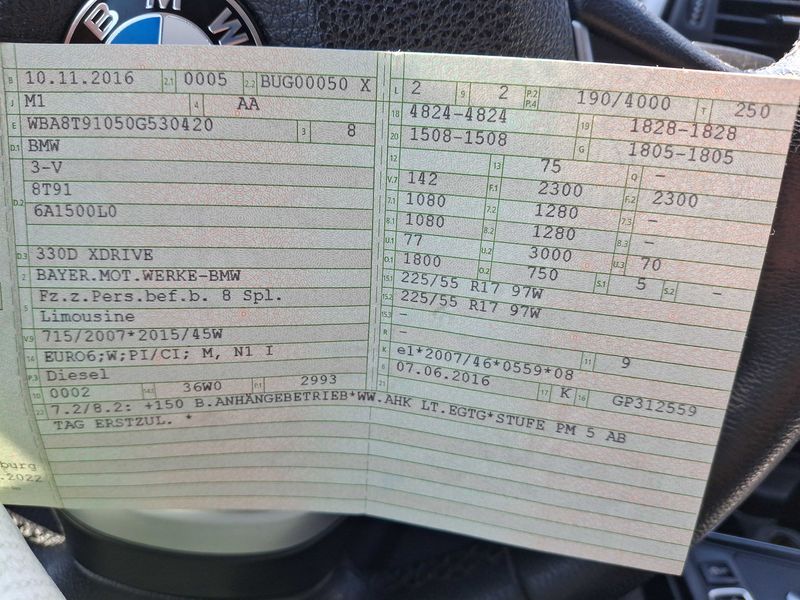 BMW
B 10.11.2016 2.1 0005 2.2 BUG00050 X
J M1 4 AA
E WBA8T91050G530420 3 8
D.1 BMW
3-V
8T91
D.2 6A1500L0
D.3 330D XDRIVE
2 BAYER.MOT.WERKE-BMW
Fz.z.Pers.bef.b. 8 Spl.
5 Limousine
V.9 715/2007*2015/45W
14 EURO6;W;PI/CI; M, N1 I
P.3 Diesel
10 0002 14.1 36W0 P.1 2993
22 7.2/8.2: +150 B.ANHÄNGEBETRIEB*WW.AHK LT.EGTG*STUFE PM 5 AB
TAG ERSTZUL. *
burg
.2022
L 2 9 2 P.2 P.4 190/4000 T 250
18 4824-4824 19 1828-1828
20 1508-1508 G 1805-1805
12 13 75 Q -
V.7 142 F.1 2300 F.2 2300
7.1 1080 7.2 1280 7.3 -
8.1 1080 8.2 1280 8.3 -
U.1 77 U.2 3000 U.3 70
O.1 1800 O.2 750 S.1 5 S.2 -
15.1 225/55 R17 97W
15.2 225/55 R17 97W
15.3 -
R - 11 9
K e1*2007/46*0559*08
6 07.06.2016 17 K 16 GP312559
21